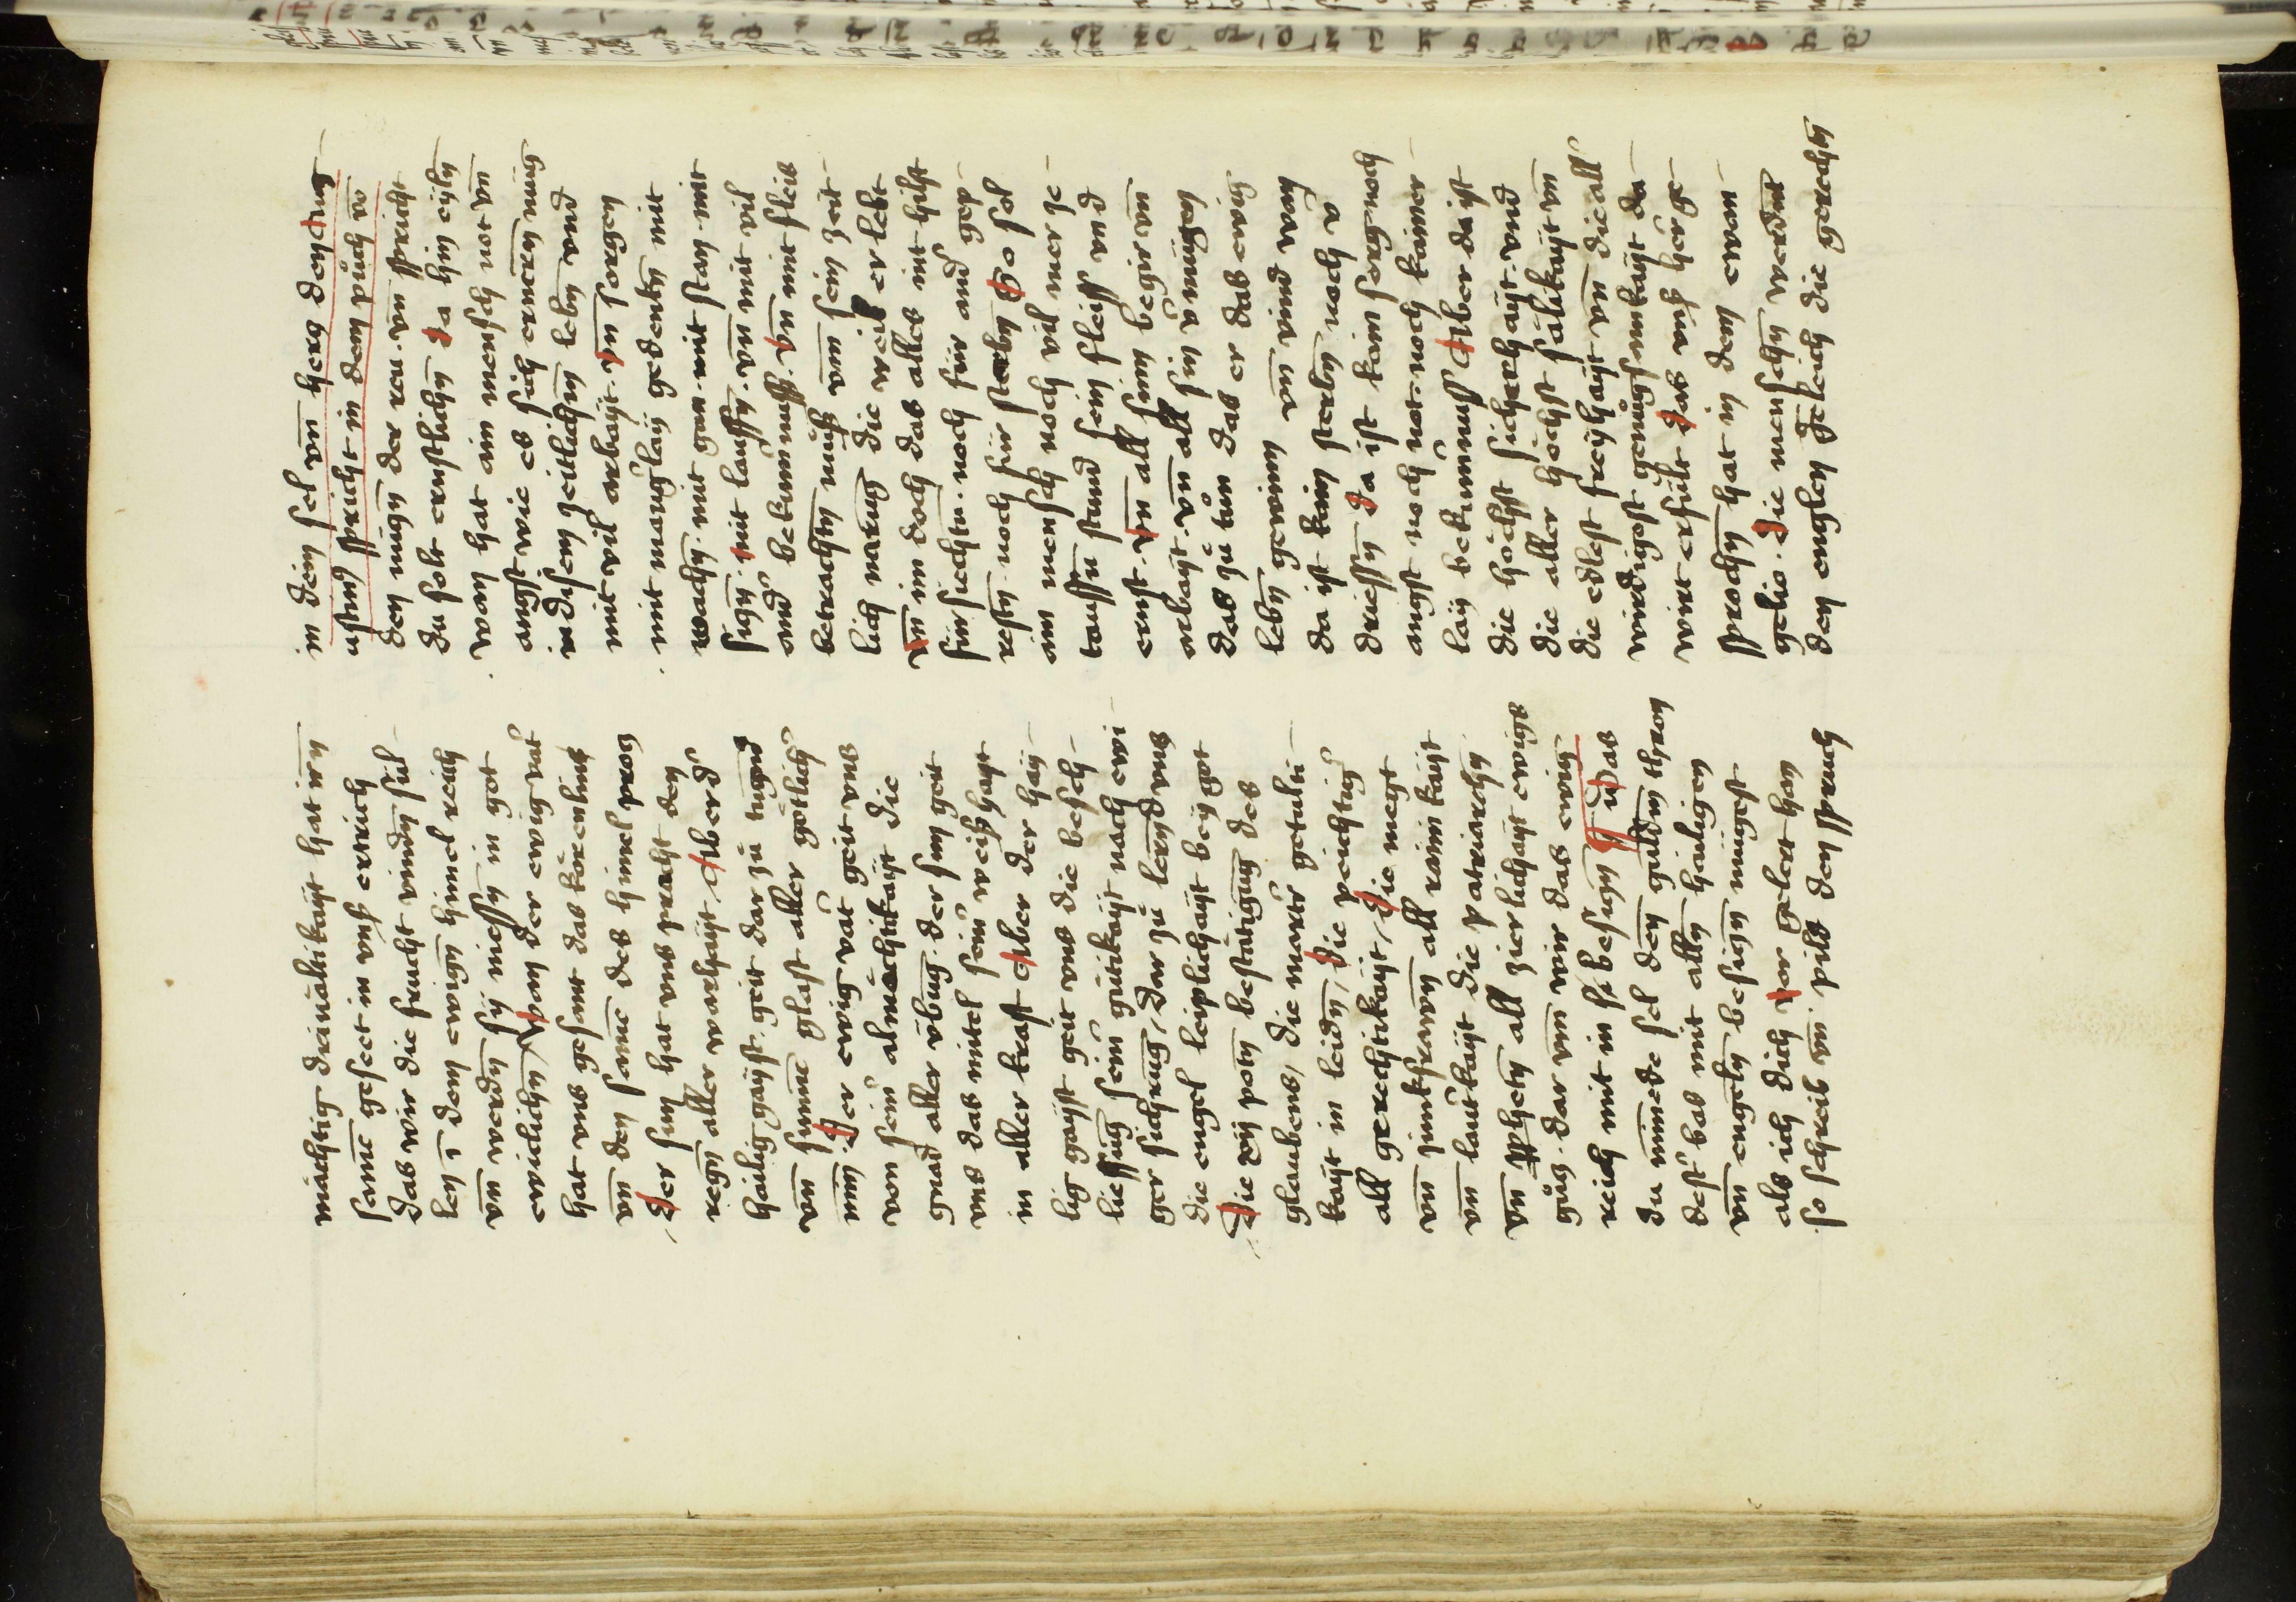 mächtig driualtikaÿt hat irn̄
samē geseet in vnß ertrich
das wir die frucht vindn̄ sül-
len ī dem ewign̄ himel reich
vn̄ werdn̄ sÿ niessn̄ in got
ewiclichn̄ / Wan der ewig vat͛
hat vns gesant das koren hin͛
vn̄ den samē des himel procz
Der sun hat vns pracht den
regn̄ aller warhaÿt Aber d͛
hailig gaÿst geit dar zů tugn̄d
vn̄ sunnē glast aller götlich͛
min̄ Der ewig vat͛ geit vns
von sein͛ almächtikaÿt die
gnad aller v̈būg der sun geit
vns das mitel sein͛ weißhayt
in aller kraft Aber der haÿ-
lig gaÿst geit vns die besch-
liessūg sein͛ gütikaÿt nach ewi-
ger sichrūg / Dar zů lern̄d vns
die engel leiplichaÿt beÿ got
Die xij potn̄ bestätigūg des
glaubens / die martr̄ getulti-
kaÿt in leidn̄ / die peichtig͛
all gerechtikaÿt / die megt
vn̄ junkfrawn̄ all rainikaÿt
vn̄ laut͛kaÿt die patriarchn̄
vn̄ ꝓphetn̄ all zierlichaÿt ewigs
gůcz. dar vm̄ wir das ewig
reich mit in besiczn̄ Das
du minēde sel den guldin thron
dest͛ bas mit alln̄ hailigen
vn̄ engeln̄ besiczn̄ mügest
als ich dich vor gelert han
so schreib vn̄ pild den spruch
in dein sel vn̄ hercz den aug
ustin͛ spricht in dem půch vō
den mügn̄ der reu. vn̄ spricht
du solt ernstlichn̄ da hin eÿln̄
Wan hat ain mensch not vn̄
angst wie es sich ernern̄ müg
in disem zeitlichn̄ lebn̄ vnd
mit vil arbaÿt. vn̄ sorgen
mit mang͛laÿ gedenkn̄ mit
wachn̄. mit gan. mit stan. mit
siczn̄. mit lauffn̄. vn̄ mit vil
and͛ bekum̄nuss. vn̄ mit fleis
betrachtn̄ můß vm̄ sein zeit-
lich narūg die weil er lebt
vn̄ im doch das alles nit hilft
für siechtū. noch für and͛ gep-
restn̄. noch für sterbn̄ So sol
ain mensch noch vil mer je-
taussn̄ stund sein fleiss vnd
ernst. vn̄ all sein begir vn̄
arbaÿt. vn̄ all sin v͛mügen
das zů tůn das er das ewig
lebn̄ gewinn vn̄ vind wan
da ist kain sterbn̄ noch v͛
driessn̄ da ist kain sorg noch
angst noch not. noch kainer-
laÿ bekum̄nuss Aber da ist
die höchst sicherhaÿt. vnd
die aller höchst sälikaÿt vn̄
die edlest freÿhaÿt vn̄ die all͛
wirdigost genůgsamkaÿt da-
wirt erfült das vnß her ge-
sprochn̄ hat in dem ewan-
gelio. Die menschn̄ werdn̄t
den englen geleich die gerechtn̄